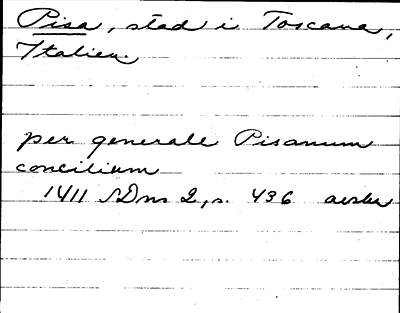 Pisa, stad i Toscana,
Italien.
per generale Pisanum
concilium
1411 SDns 2, s. 436 avskr